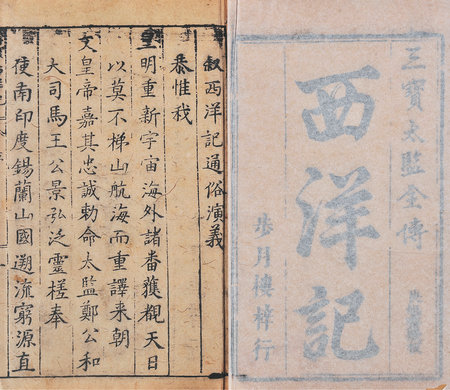 三寶太監全傳
西洋記
步月樓梓行
叙西洋記通俗演義
恭惟我
皇明重新宇宙海外諸番獲覩天日
以莫不梯山航海而重譯来朝
文皇帝嘉其忠誠勅命太監鄭公和
大司馬王公景弘泛靈槎奉
使南印度錫蘭山國遡流窮源直